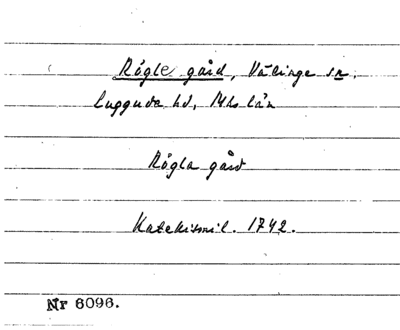 Rögle gård, Välinge sn.
Luggude hd, Mhs län
Rögla gård
Katekismil. 1742.
Nr 6096.